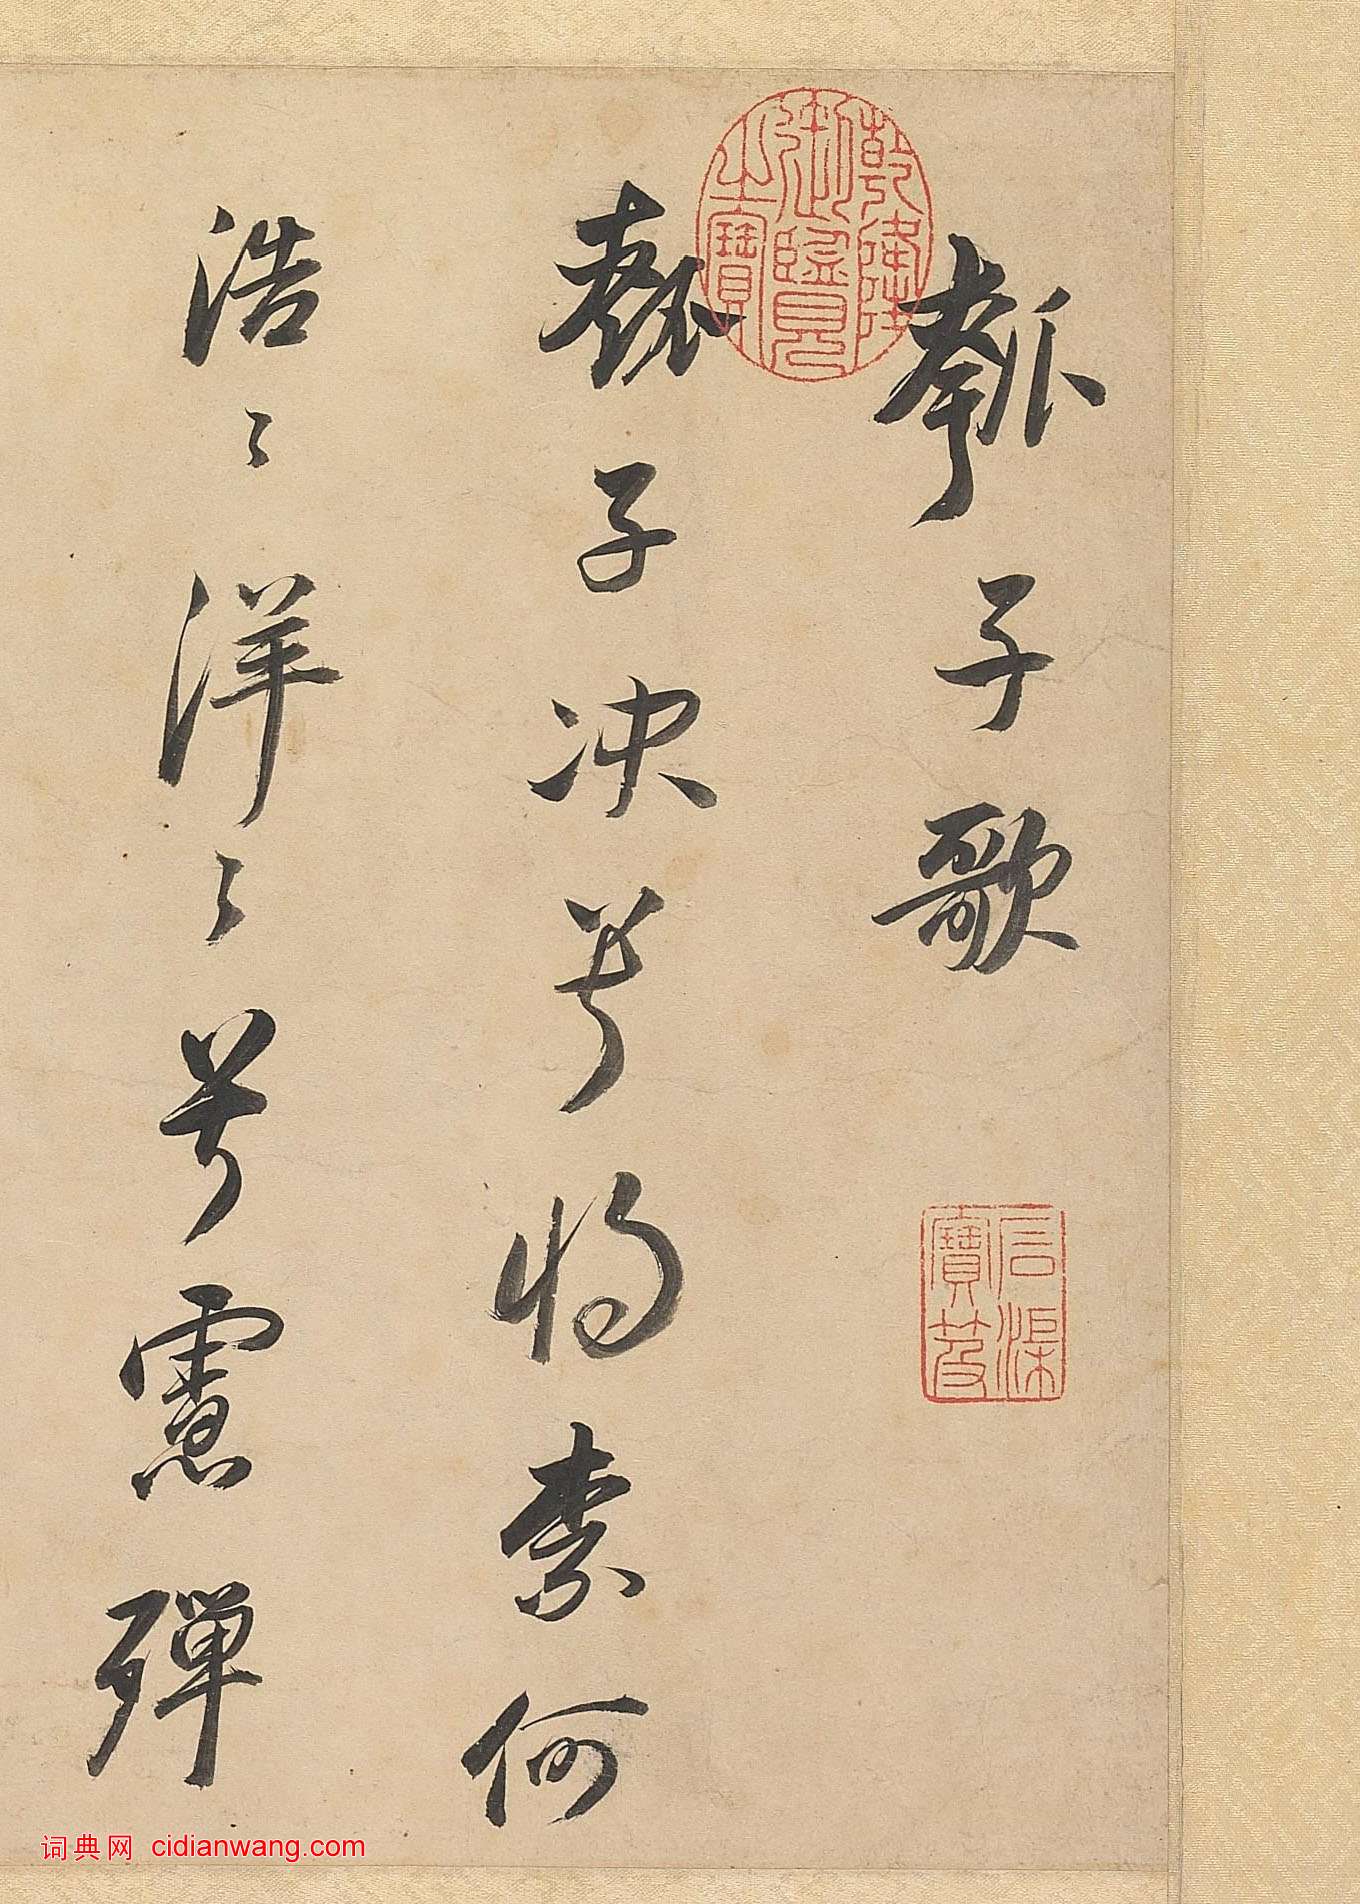 瓠子歌
瓠子决兮將柰何
浩〻洋〻兮慮殫
乾隆御覽之寶
石渠寶笈
词典网 cidianwang.com